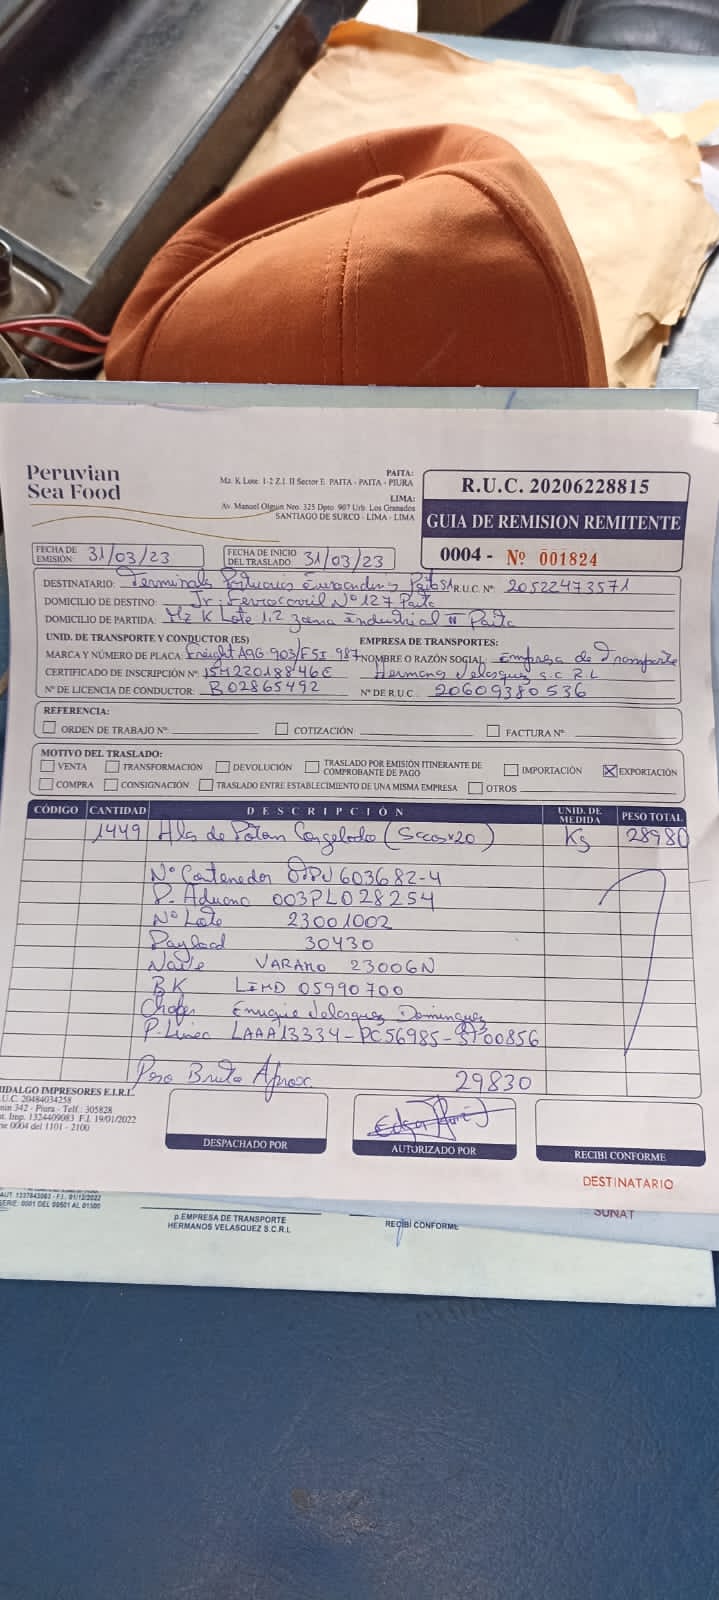 Peruvian
Sea Food
PAITA:
Mz. K Lote. 1-2 Z.I. II Sector E. PAITA - PAITA - PIURA
LIMA:
Av. Manuel Olguin Nro. 325 Dpto. 907 Urb. Los Granados
SANTIAGO DE SURCO - LIMA - LIMA
R.U.C. 20206228815
GUIA DE REMISION REMITENTE
0004 - Nº 001824
FECHA DE EMISIÓN: 31/03/23
FECHA DE INICIO DEL TRASLADO: 31/03/23
DESTINATARIO: Terminales Portuarios Euroandinos Paita SA R.U.C. Nº 20522473571
DOMICILIO DE DESTINO: Jr. Ferrocarril Nº 127 Paita
DOMICILIO DE PARTIDA: Mz K Lote 1,2 zona Industrial II Paita
UNID. DE TRANSPORTE Y CONDUCTOR (ES) EMPRESA DE TRANSPORTES:
MARCA Y NÚMERO DE PLACA: Freight A9G-903/F5I-987 NOMBRE O RAZÓN SOCIAL: Empresa de Transporte
CERTIFICADO DE INSCRIPCIÓN Nº: 154220188466 Hermanos Velasquez S.C.R.L
Nº DE LICENCIA DE CONDUCTOR: B02865492 Nº DE R.U.C. 20609380536
REFERENCIA:
ORDEN DE TRABAJO Nº COTIZACIÓN FACTURA Nº
MOTIVO DEL TRASLADO:
VENTA TRANSFORMACIÓN DEVOLUCIÓN TRASLADO POR EMISIÓN ITINERANTE DE COMPROBANTE DE PAGO IMPORTACIÓN EXPORTACIÓN
COMPRA CONSIGNACIÓN TRASLADO ENTRE ESTABLECIMIENTO DE UNA MISMA EMPRESA OTROS
CÓDIGO CANTIDAD DESCRIPCIÓN UNID. DE MEDIDA PESO TOTAL
1449 Ala de Potón Congelado (Sacos x20) Kg 28980
Nº Contenedor 603682-4
P. Aduana 003PLO28254
Nº Lote 23001002
Payload 30430
Nave VARAMO 23006N
BK LIMD 05990700
Chofer Enrique Velasquez Dominguez
P. Linea LAAA13334-PC56985-ST00856
Peso Bruto Aprox. 29830
HIDALGO IMPRESORES E.I.R.L.
.U.C. 20484034258
min 342 - Piura - Telf.: 305828
t. Imp. 1324409083 F.I. 19/01/2022
ne 0004 del 1101 - 2100
DESPACHADO POR
AUTORIZADO POR
RECIBI CONFORME
DESTINATARIO
AUT. 1337843083 - F.I. 01/12/2022
SERIE: 0001 DEL 00501 AL 01500
p.EMPRESA DE TRANSPORTE
HERMANOS VELASQUEZ S.C.R.L
RECIBÍ CONFORME
SUNAT